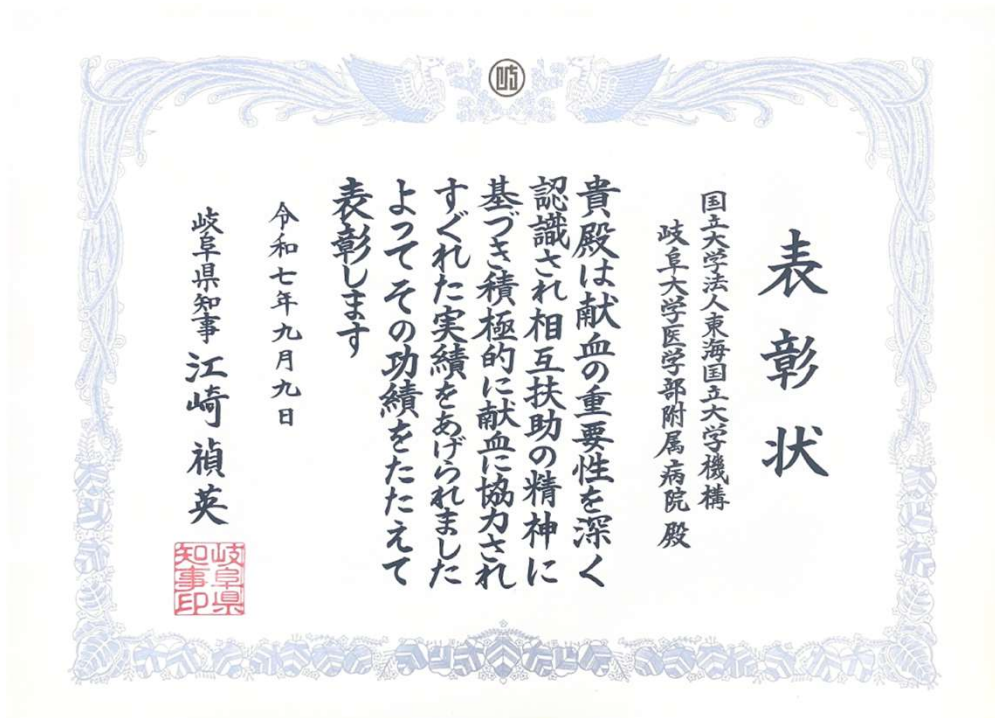 岐
表彰状
国立大学法人東海国立大学機構
岐阜大学医学部附属病院 殿
貴殿は献血の重要性を深く
認識され相互扶助の精神に
基づき積極的に献血に協力され
すぐれた実績をあげられました
よってその功績をたたえて
表彰します
令和七年九月九日
岐阜県知事 江崎禎英
岐阜県
知事印